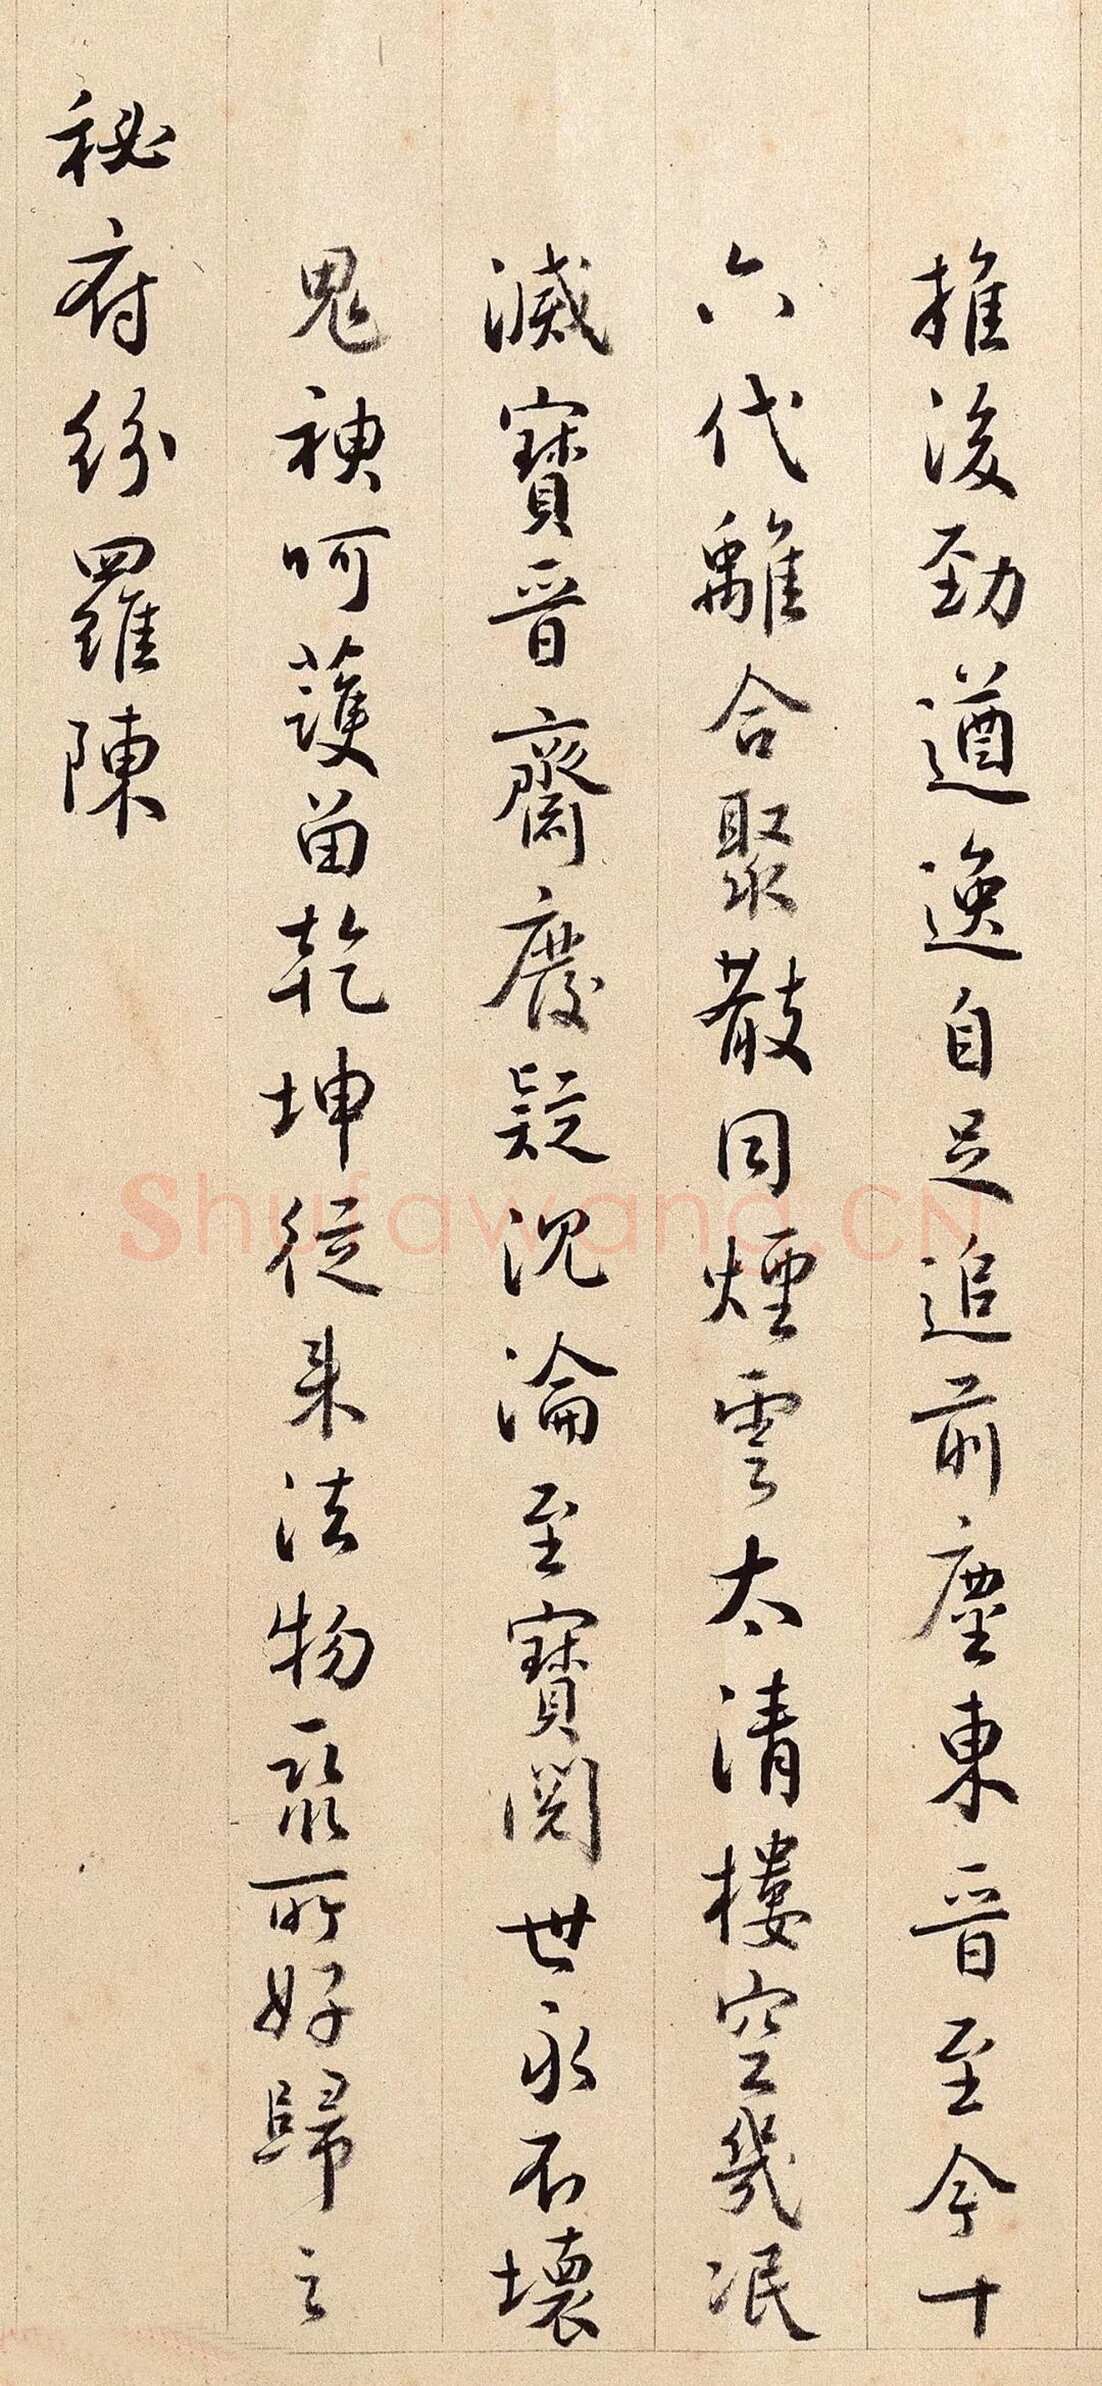 推後勁遒逸自足追前塵東晉至今十
六代離合聚散同煙雲太清樓空幾泯
滅寶晉齋廢疑沉淪至寶閱世永不壞
鬼神呵護留乾坤從来法物聚所好歸之
秘府紛羅陳
Shufawang.CN